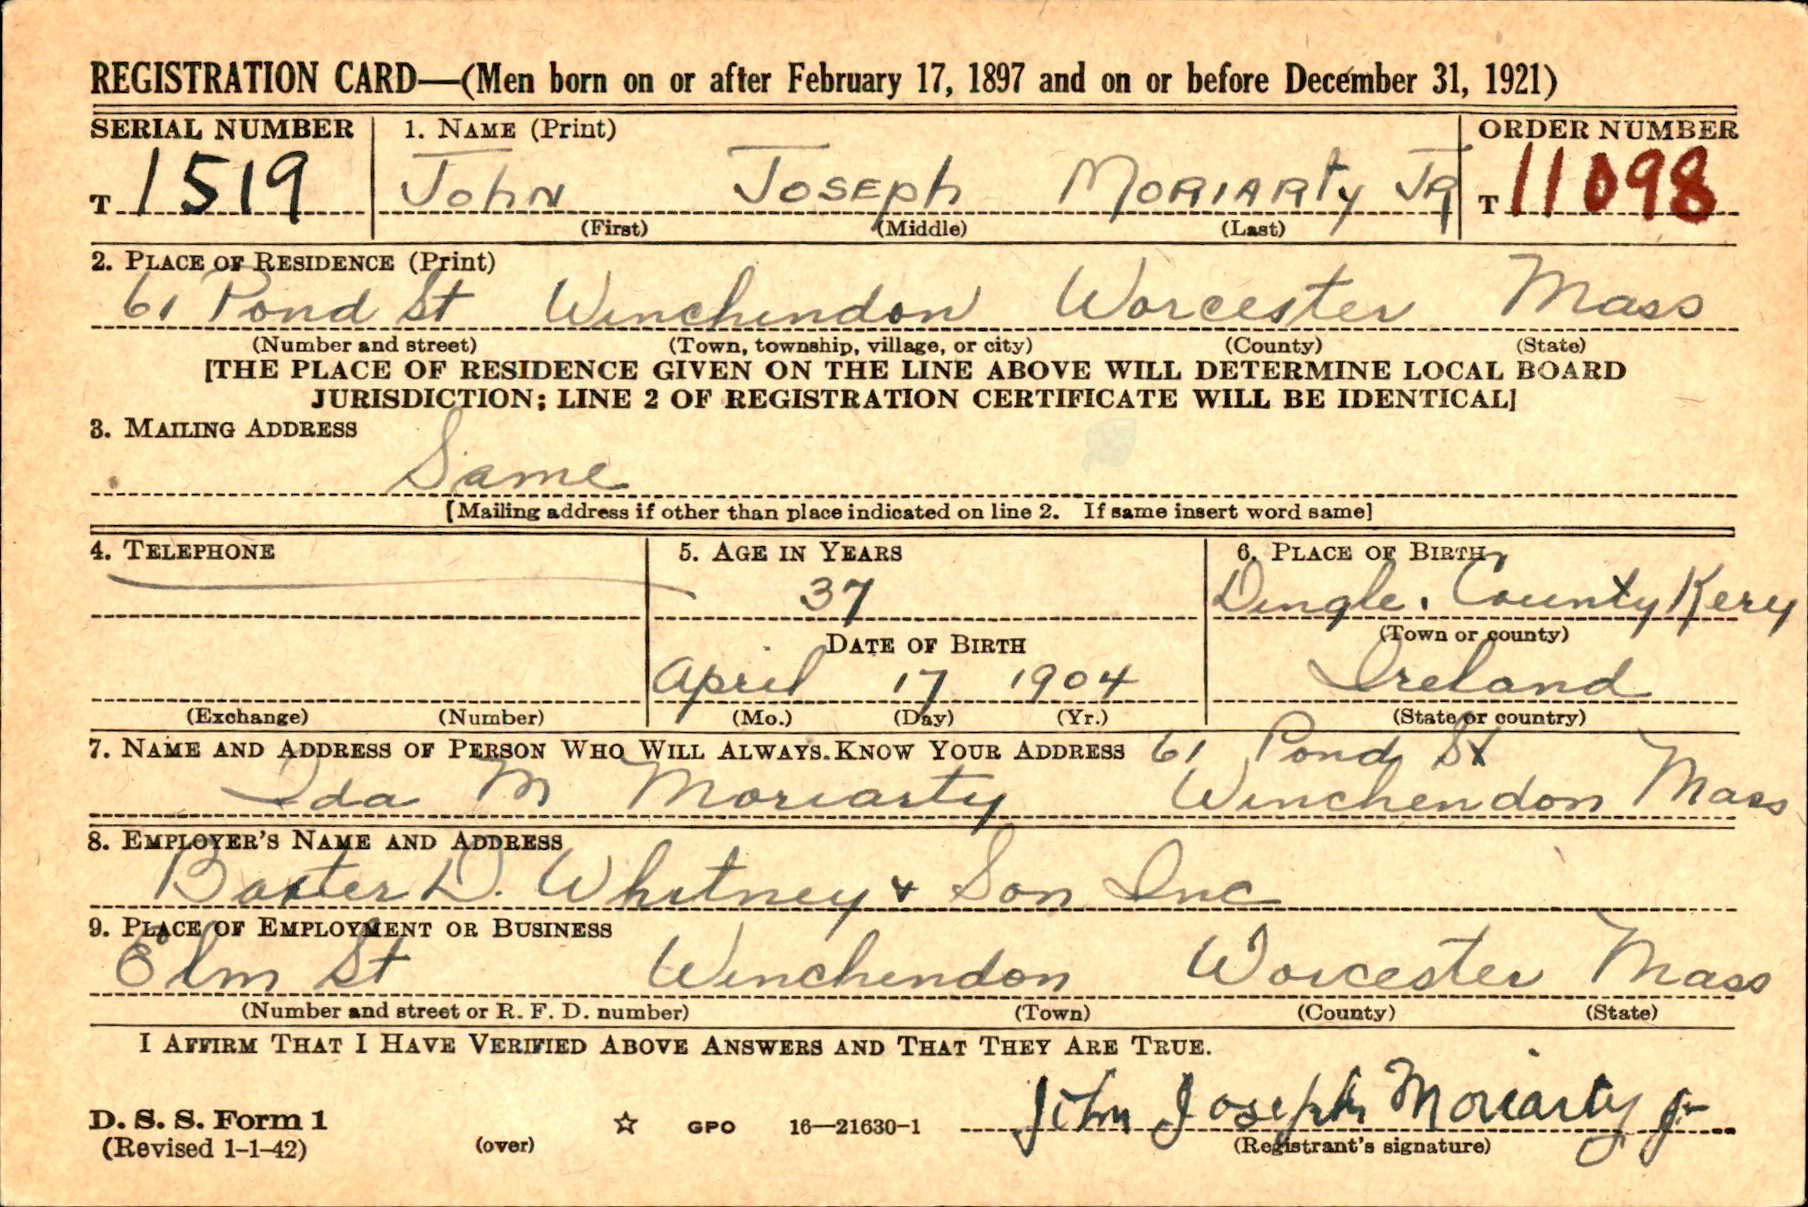 REGISTRATION CARD—(Men born on or after February 17, 1897 and on or before December 31, 1921)
SERIAL NUMBER 1. NAME (Print) ORDER NUMBER
T 1519 John Joseph Moriarty Jr T 11098
(First) (Middle) (Last)
2. PLACE OF RESIDENCE (Print)
61 Pond St Winchendon Worcester Mass
(Number and street) (Town, township, village, or city) (County) (State)
[THE PLACE OF RESIDENCE GIVEN ON THE LINE ABOVE WILL DETERMINE LOCAL BOARD
JURISDICTION; LINE 2 OF REGISTRATION CERTIFICATE WILL BE IDENTICAL]
3. MAILING ADDRESS
Same
[Mailing address if other than place indicated on line 2. If same insert word same]
4. TELEPHONE 5. AGE IN YEARS 6. PLACE OF BIRTH
37 Dingle, County Kery
DATE OF BIRTH (Town or county)
April 17 1904 Ireland
(Exchange) (Number) (Mo.) (Day) (Yr.) (State or country)
7. NAME AND ADDRESS OF PERSON WHO WILL ALWAYS KNOW YOUR ADDRESS 61 Pond St
Ida M Moriarty Winchendon Mass
8. EMPLOYER'S NAME AND ADDRESS
Baxter D. Whitney & Son Inc
9. PLACE OF EMPLOYMENT OR BUSINESS
Elm St Winchendon Worcester Mass
(Number and street or R. F. D. number) (Town) (County) (State)
I AFFIRM THAT I HAVE VERIFIED ABOVE ANSWERS AND THAT THEY ARE TRUE.
D. S. S. Form 1 ☆ GPO 16—21630-1 John Joseph Moriarty Jr
(Revised 1-1-42) (over) (Registrant's signature)